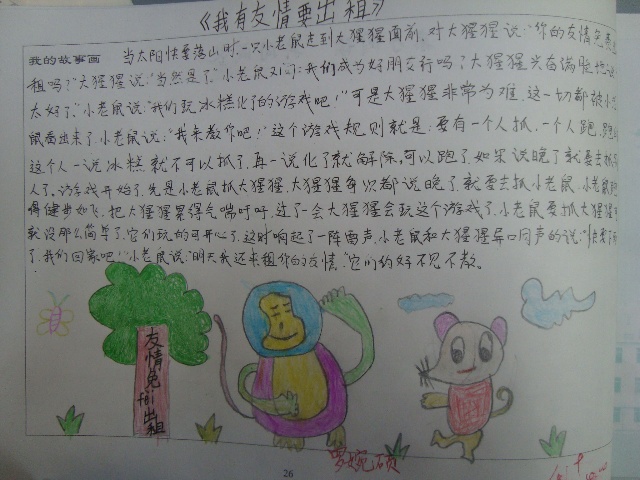 《我有友情要出租》
我的故事画 当太阳快要落山时,一只小老鼠走到大猩猩面前,对大猩猩说:"你的友情免费
租吗?"大猩猩说:"当然是了"小老鼠又问:我们成为好朋友行吗?大猩猩兴奋满脸地说
太好了。"小老鼠说:"我们玩冰糕化了的游戏吧!"可是大猩猩非常为难,这一切都被小
鼠看出来了,小老鼠说:"我来教你吧!"这个游戏规则就是:要有一个人抓,一个人跑,
这个人一说冰糕就不可以抓了,再一说化了就解除,可以跑了,如果说晚了就要去抓
人了,游戏开始了,先是小老鼠抓大猩猩,大猩猩每次都说晚了,就要去抓小老鼠,小老鼠
得健步如飞,把大猩猩累得气喘吁吁,过了一会大猩猩会玩这个游戏了,小老鼠要抓大猩猩
就没那么简单了,它们玩的可开心了,这时响起了一阵雷声,小老鼠和大猩猩异口同声的说:"快要下
了,我们回家吧!"小老鼠说:"明天我还来租你的友情,"它们约好不见不散。
友情免fèi出租
26